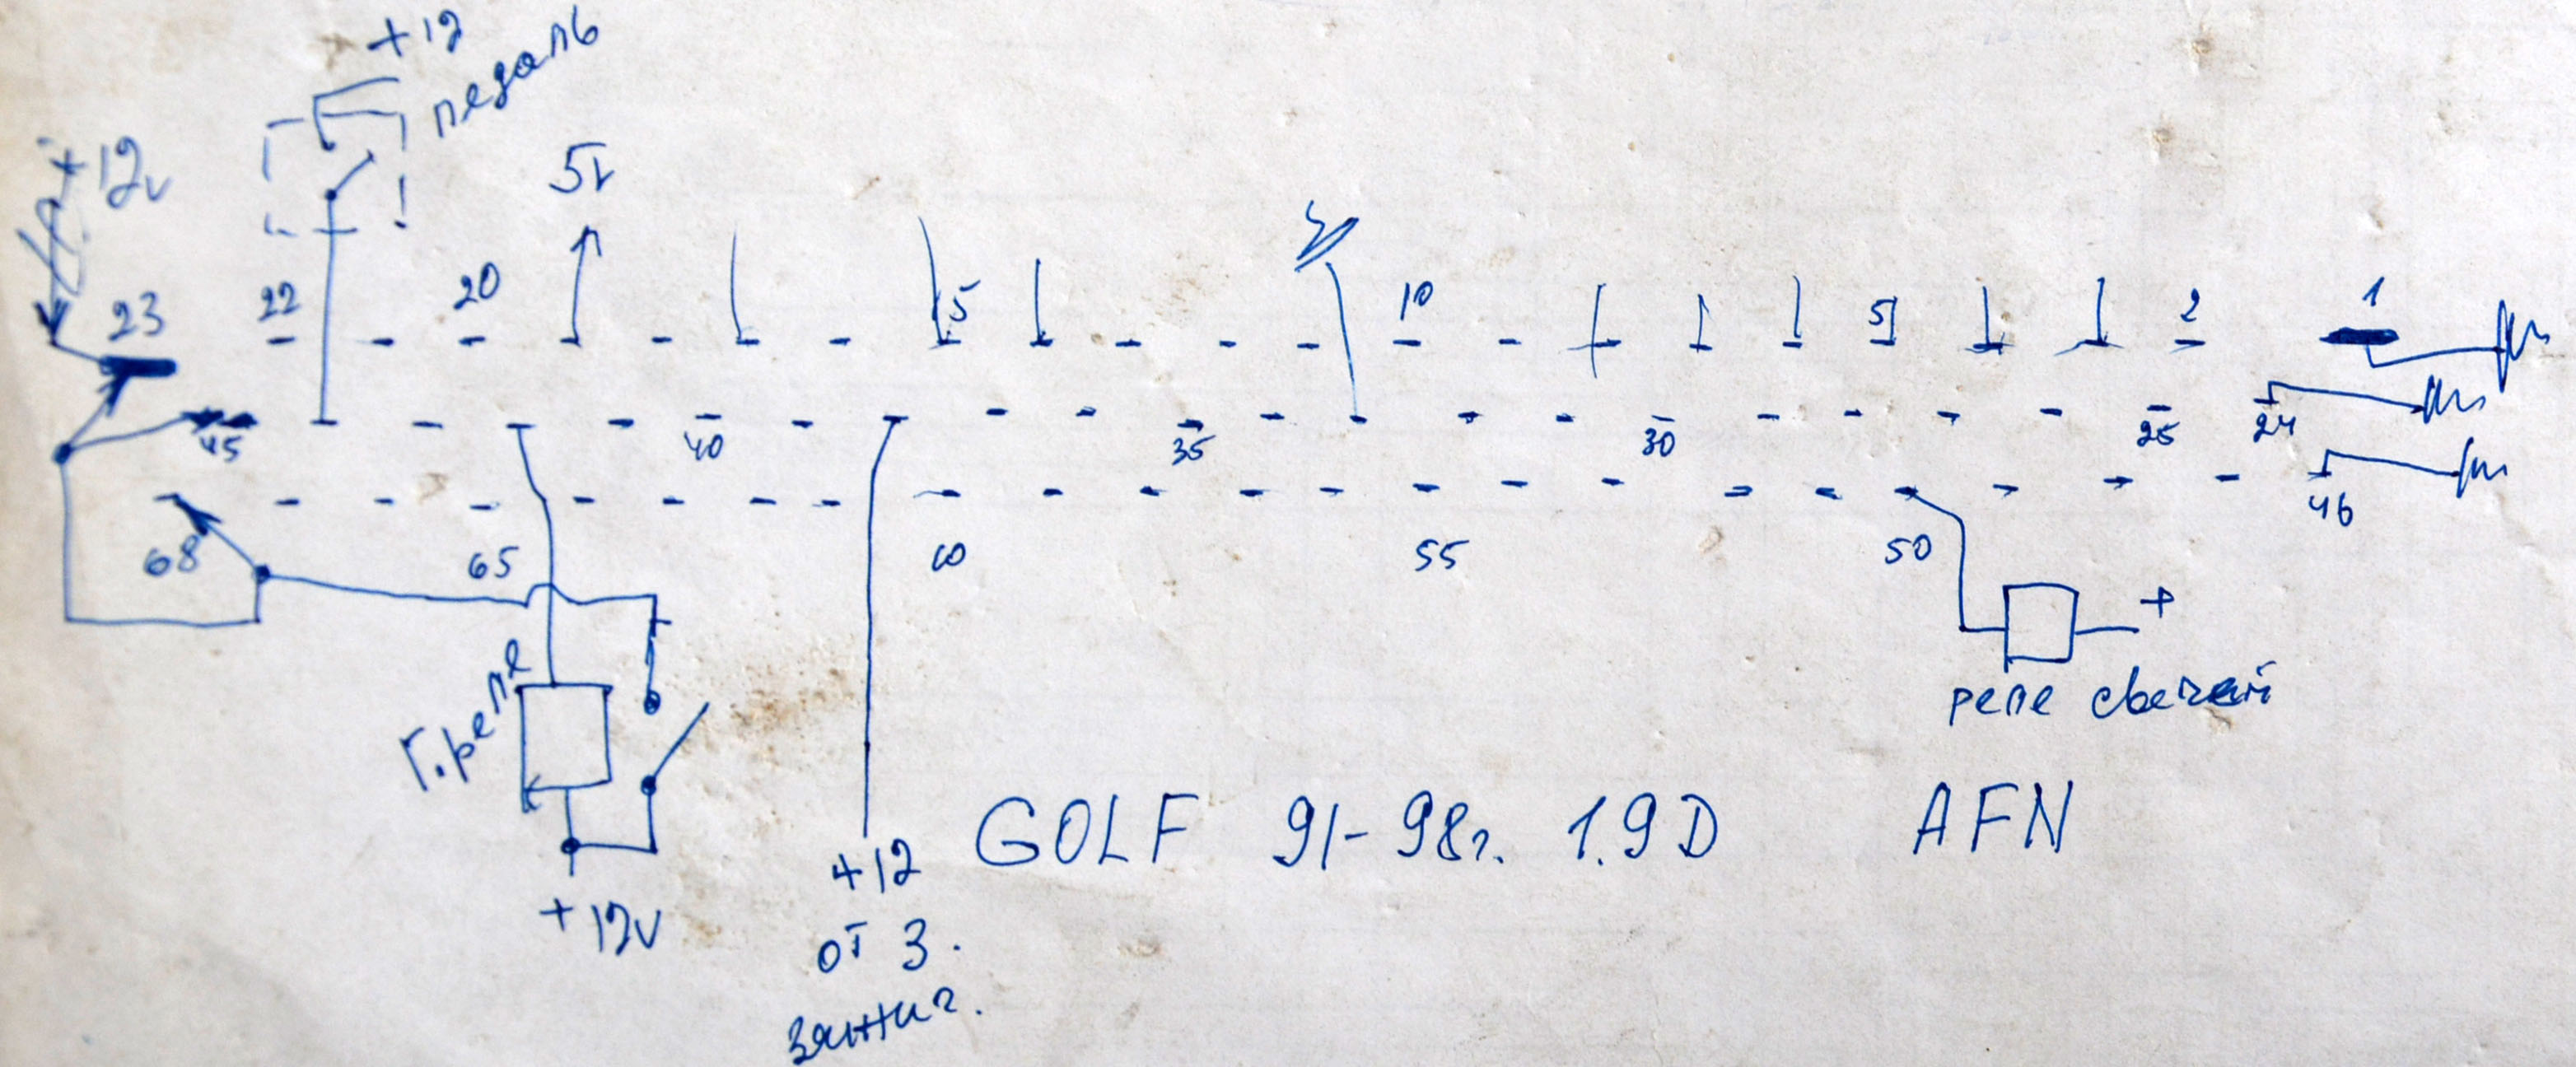 +12
педаль
+12v
5v
23
22
20
15
10
5
2
1
45
40
35
30
25
24
68
65
60
55
50
46
Г.реле
+
реле свечей
+12v
+12
от з.
зажиг.
GOLF 91-98г. 1.9D AFN